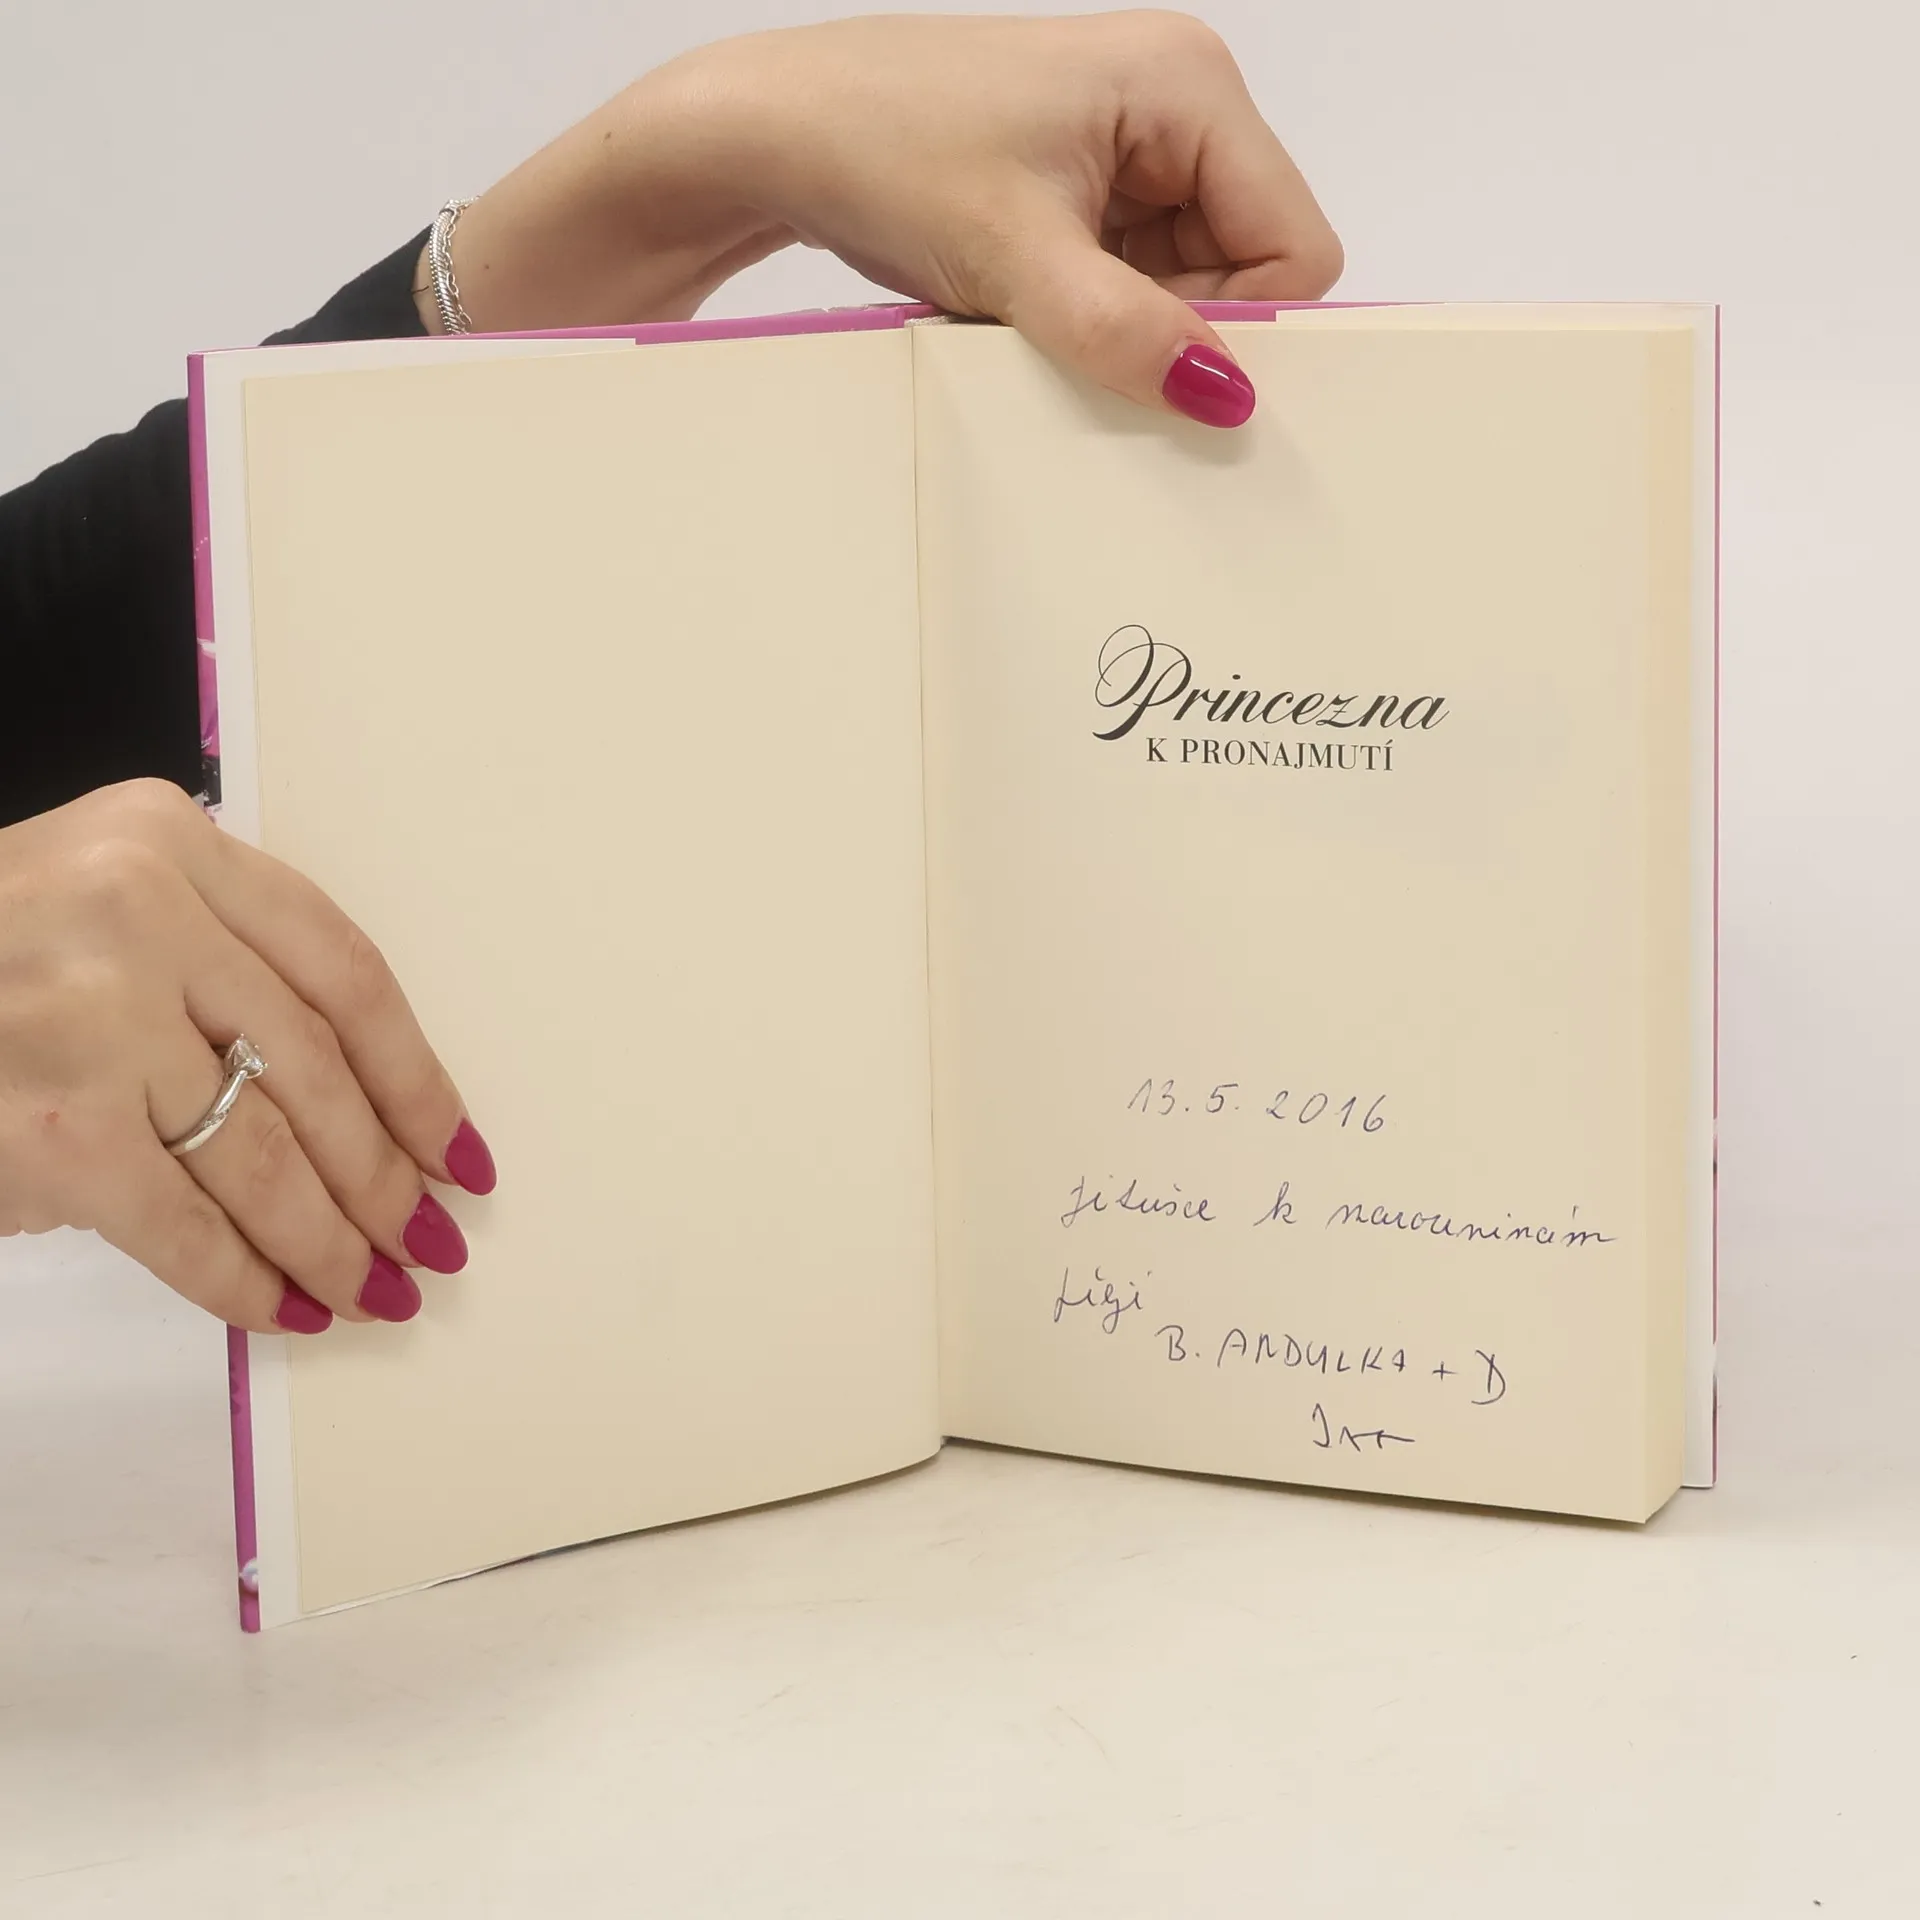 Princezna
K PRONAJMUTÍ
13.5.2016
Jitušce k narozeninám
přejí
B. ANDULKA + D